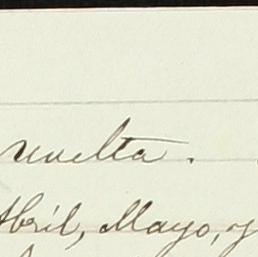 vuelta.
Abril, Mayo, y